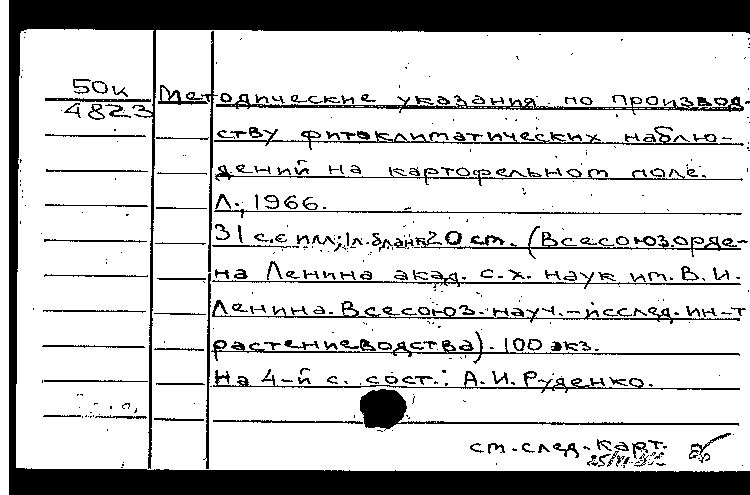 50к
4823
Методические указания по производ-
ству фитоклиматических наблю-
дений на картофельном поле.
Л., 1966.
31 с.с илл.; 1л. бланк 20 ст. (Всесоюз.орде-
на Ленина акад. с.х. наук им. В. И.
Ленина. Всесоюз. науч.-исслед. ин-т
растениеводства). 100 экз.
На 4-й с. сост.: А. И. Руденко.
ст. след. карт.